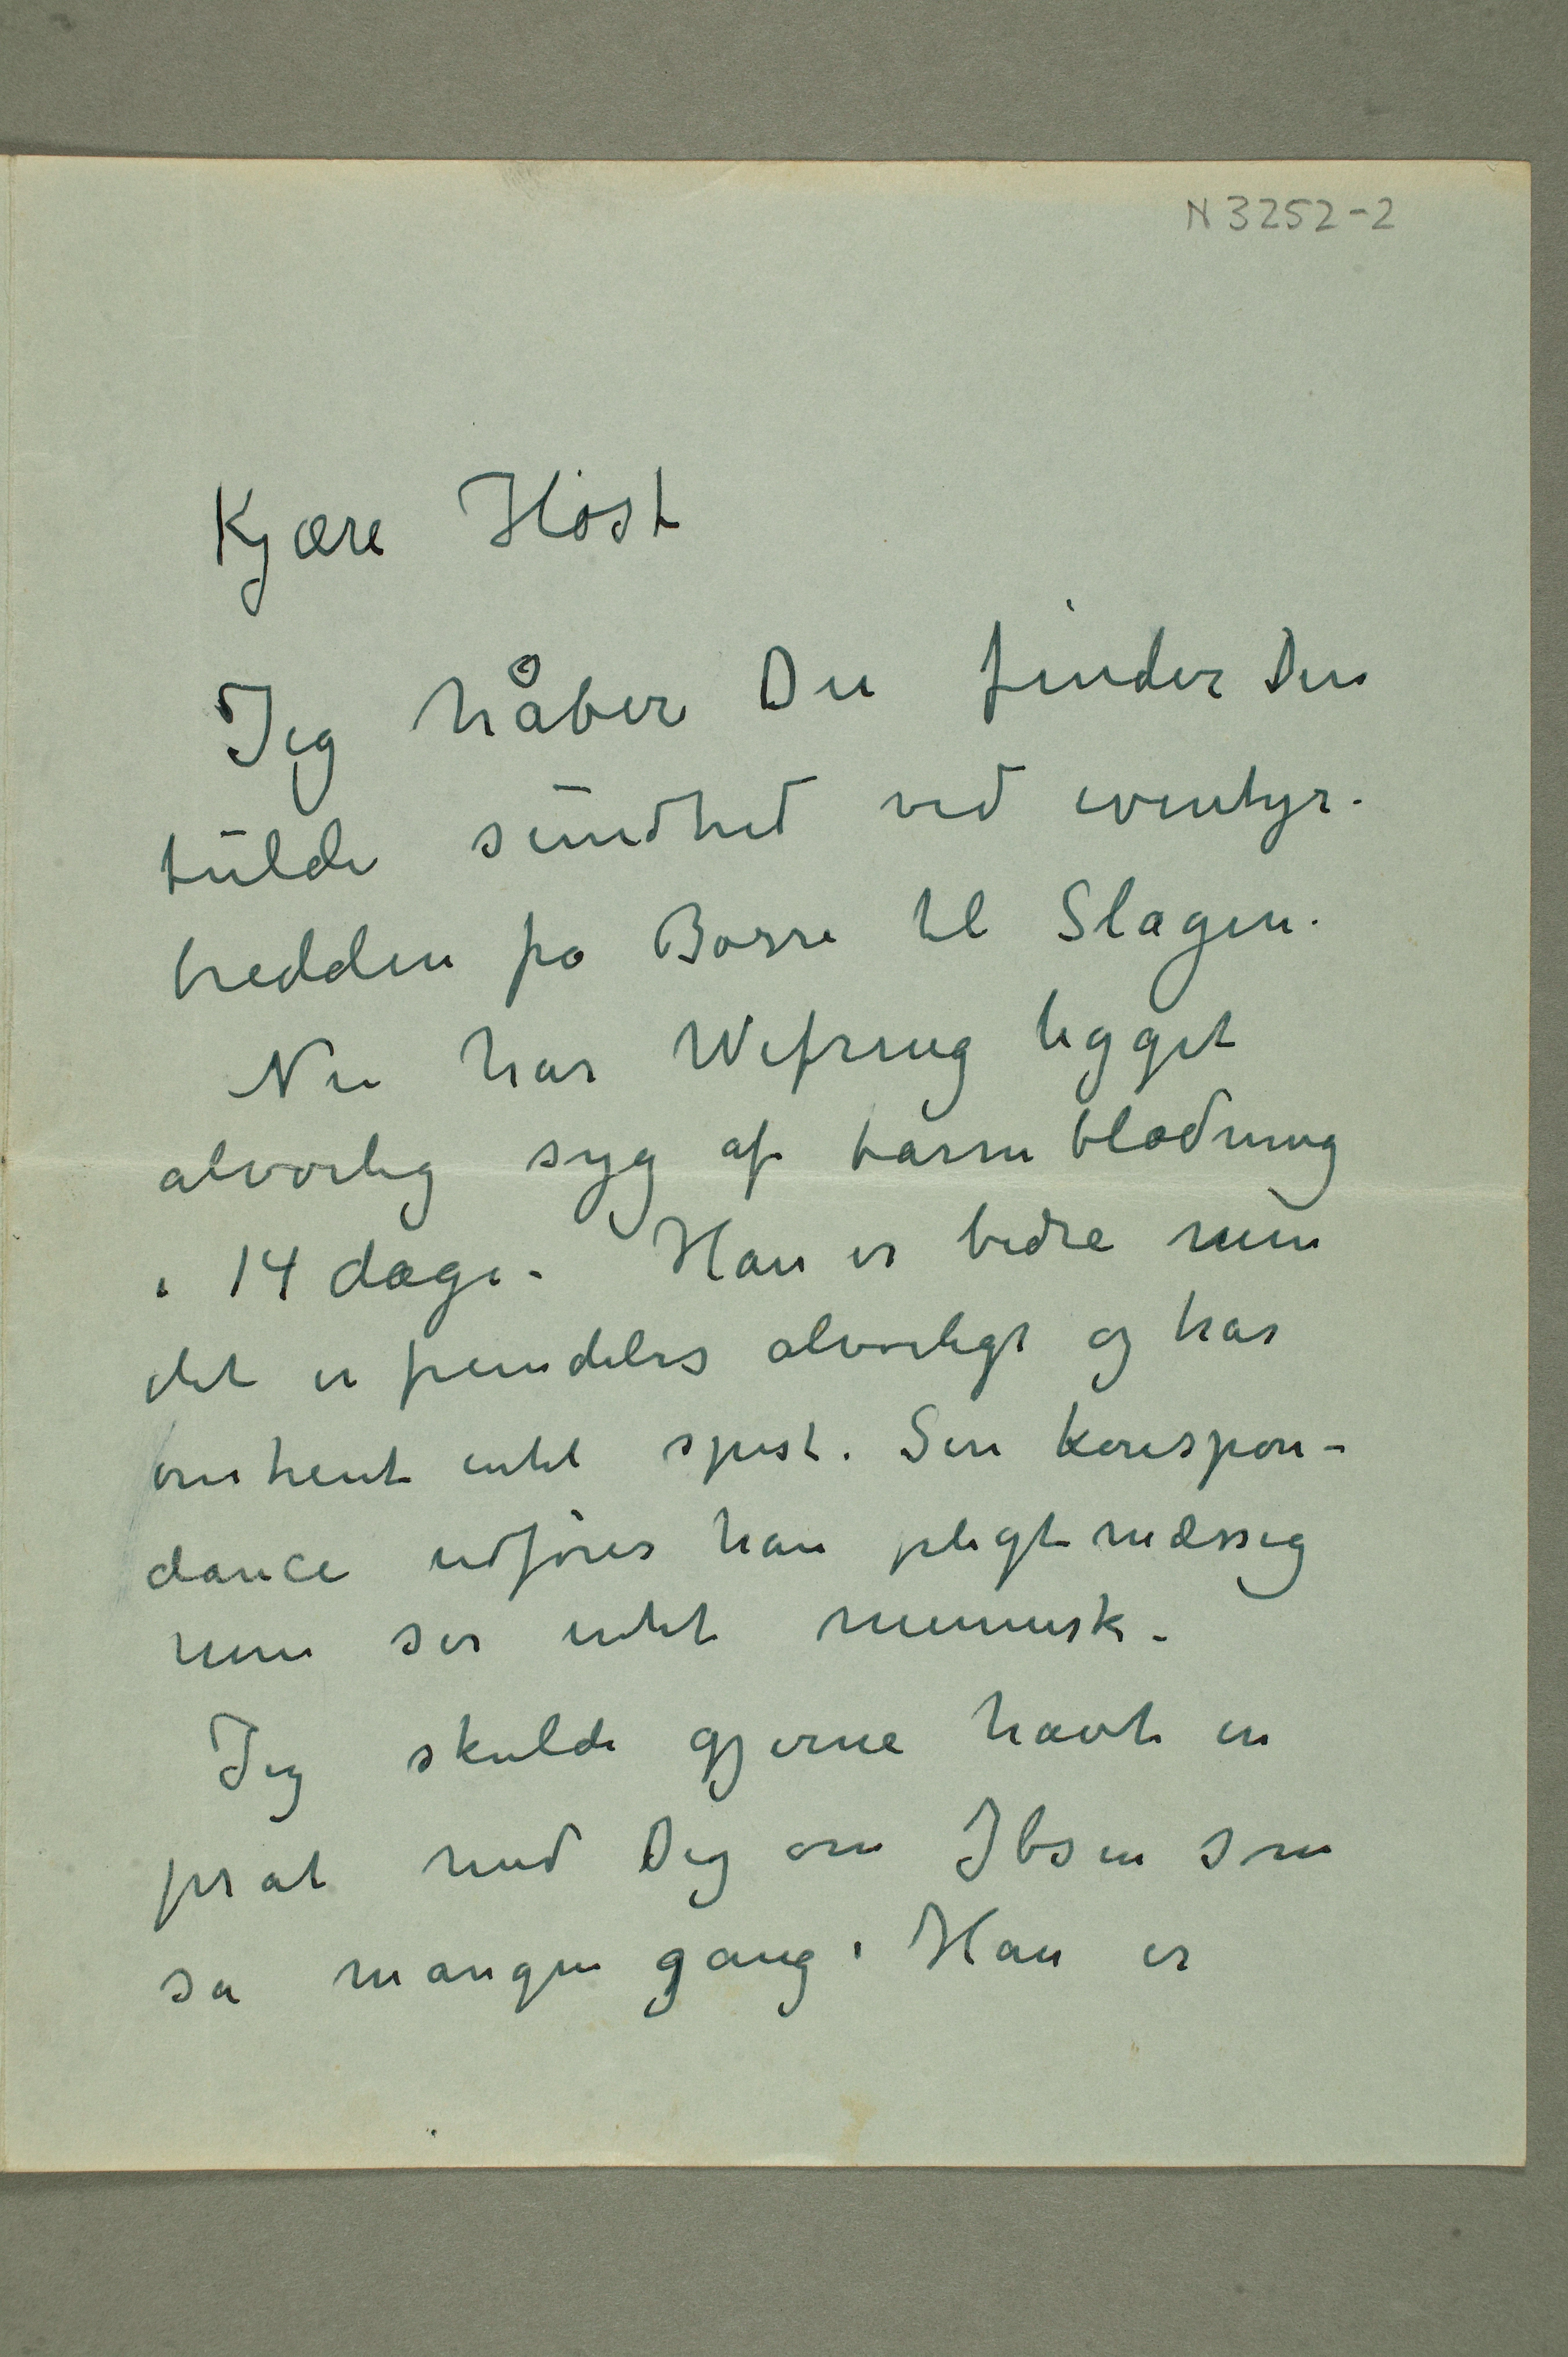 N 3252-2
Kjære Høst
Jeg håber Du finder Din
fulde sundhed ved eventyr-
bredden fra Borre til Slagen.
Nu har Wefring ligget
alvorlig syg af tarmblødning
i 14 dage. Han er bedre men
det er fremdeles alvorligt og har
omtrent intet spist. Sin korespon-
dance udfører han pligtmæssig
men ser intet mennesk.
Jeg skulde gjerne havt en
prat med Dig om Ibsen som
så mangen gang. Han er